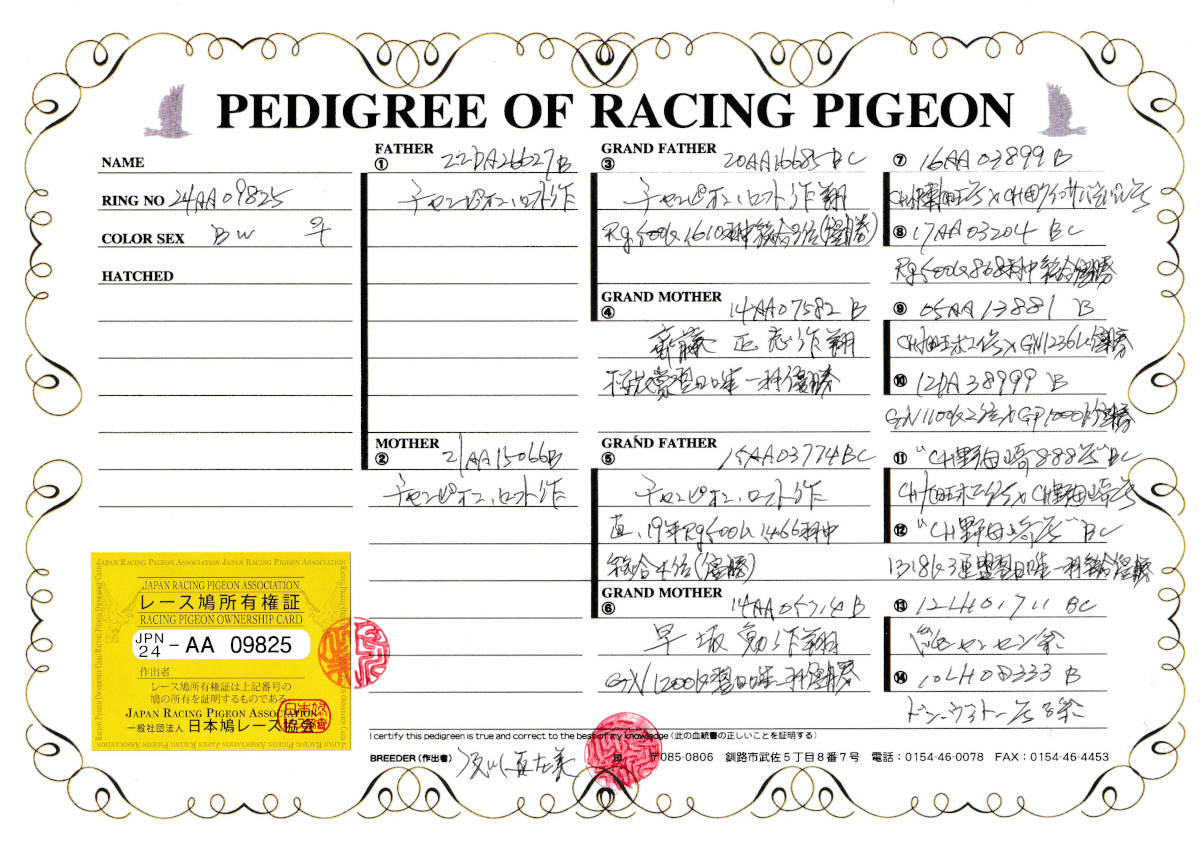 PEDIGREE OF RACING PIGEON
NAME
RING NO 24AA09825
COLOR SEX BW ♀
HATCHED
FATHER
① 22DA26627B
チャンピオン・ロフト作
MOTHER
② 21AA15066B
チャンピオン・ロフト作
GRAND FATHER
③ 20AA16685BC
チャンピオン・ロフト作翔
Rg500K 1610羽中総合3位(優勝)
GRAND MOTHER
④ 14AA07582 B
齊藤 正 作翔
翌日唯一羽優勝
GRAND FATHER
⑤ 15AA03774BC
チャンピオン・ロフト作
直、19年Rg500K 1466羽中
総合4位(優勝)
GRAND MOTHER
⑥ 14AA05714B
早坂 勉 作翔
GN1200K翌日唯一羽優勝
⑦ 16AA03899B
⑧ 17AA03204 BC
Rg500K 868羽中 総合優勝
⑨ 05AA13881 B
GN1236K優勝
⑩ 12DA38999 B
GN1100K2位×GP1000K優勝
⑪ "CH野田崎888号"BC
CH野田崎号
⑫ "CH野田崎号"BC
翌日唯一羽総合優勝
⑬ 12LH01711 BC
⑭ 10LH0D333 B
JAPAN RACING PIGEON ASSOCIATION
レース鳩所有権証
RACING PIGEON OWNERSHIP CARD
JPN
24 - AA 09825
作出者
レース鳩所有権証は上記番号の
鳩の所有を証明するものである
JAPAN RACING PIGEON ASSOCIATION
一般社団法人 日本鳩レース協会
I certify this pedigreen is true and correct to the best of my knowledge (此の血統書の正しいことを証明する)
BREEDER (作出者) 印 〒085-0806 釧路市武佐5丁目8番7号 電話:0154-46-0078 FAX:0154-46-4453